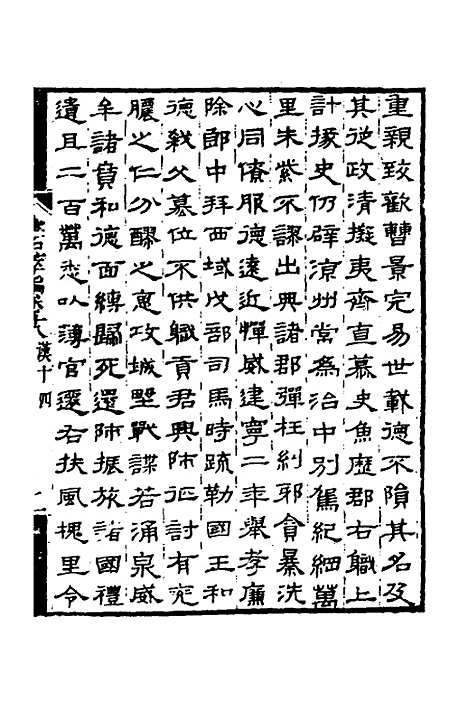 重親致歡曹景完易世載德不隕其名及
其從政清擬夷齊直慕史魚歷郡右職上
計掾史仍辟涼州常為治中別駕紀綱萬
里朱紫不謬出典諸郡彈枉糾邪貪暴洗
心同僚服德遠近憚威建寧二年舉孝廉
除郎中拜西域戊部司馬時疏勒國王和
德弒父篡位不供職貢君興師征討有兗
膿之仁分醪之惠攻城野戰謀若涌泉威
牟諸賁和德面縛歸死還師振旅諸國禮
遺且二百萬悉以薄官遷右扶風槐里令
金石萃編卷十八 漢十四